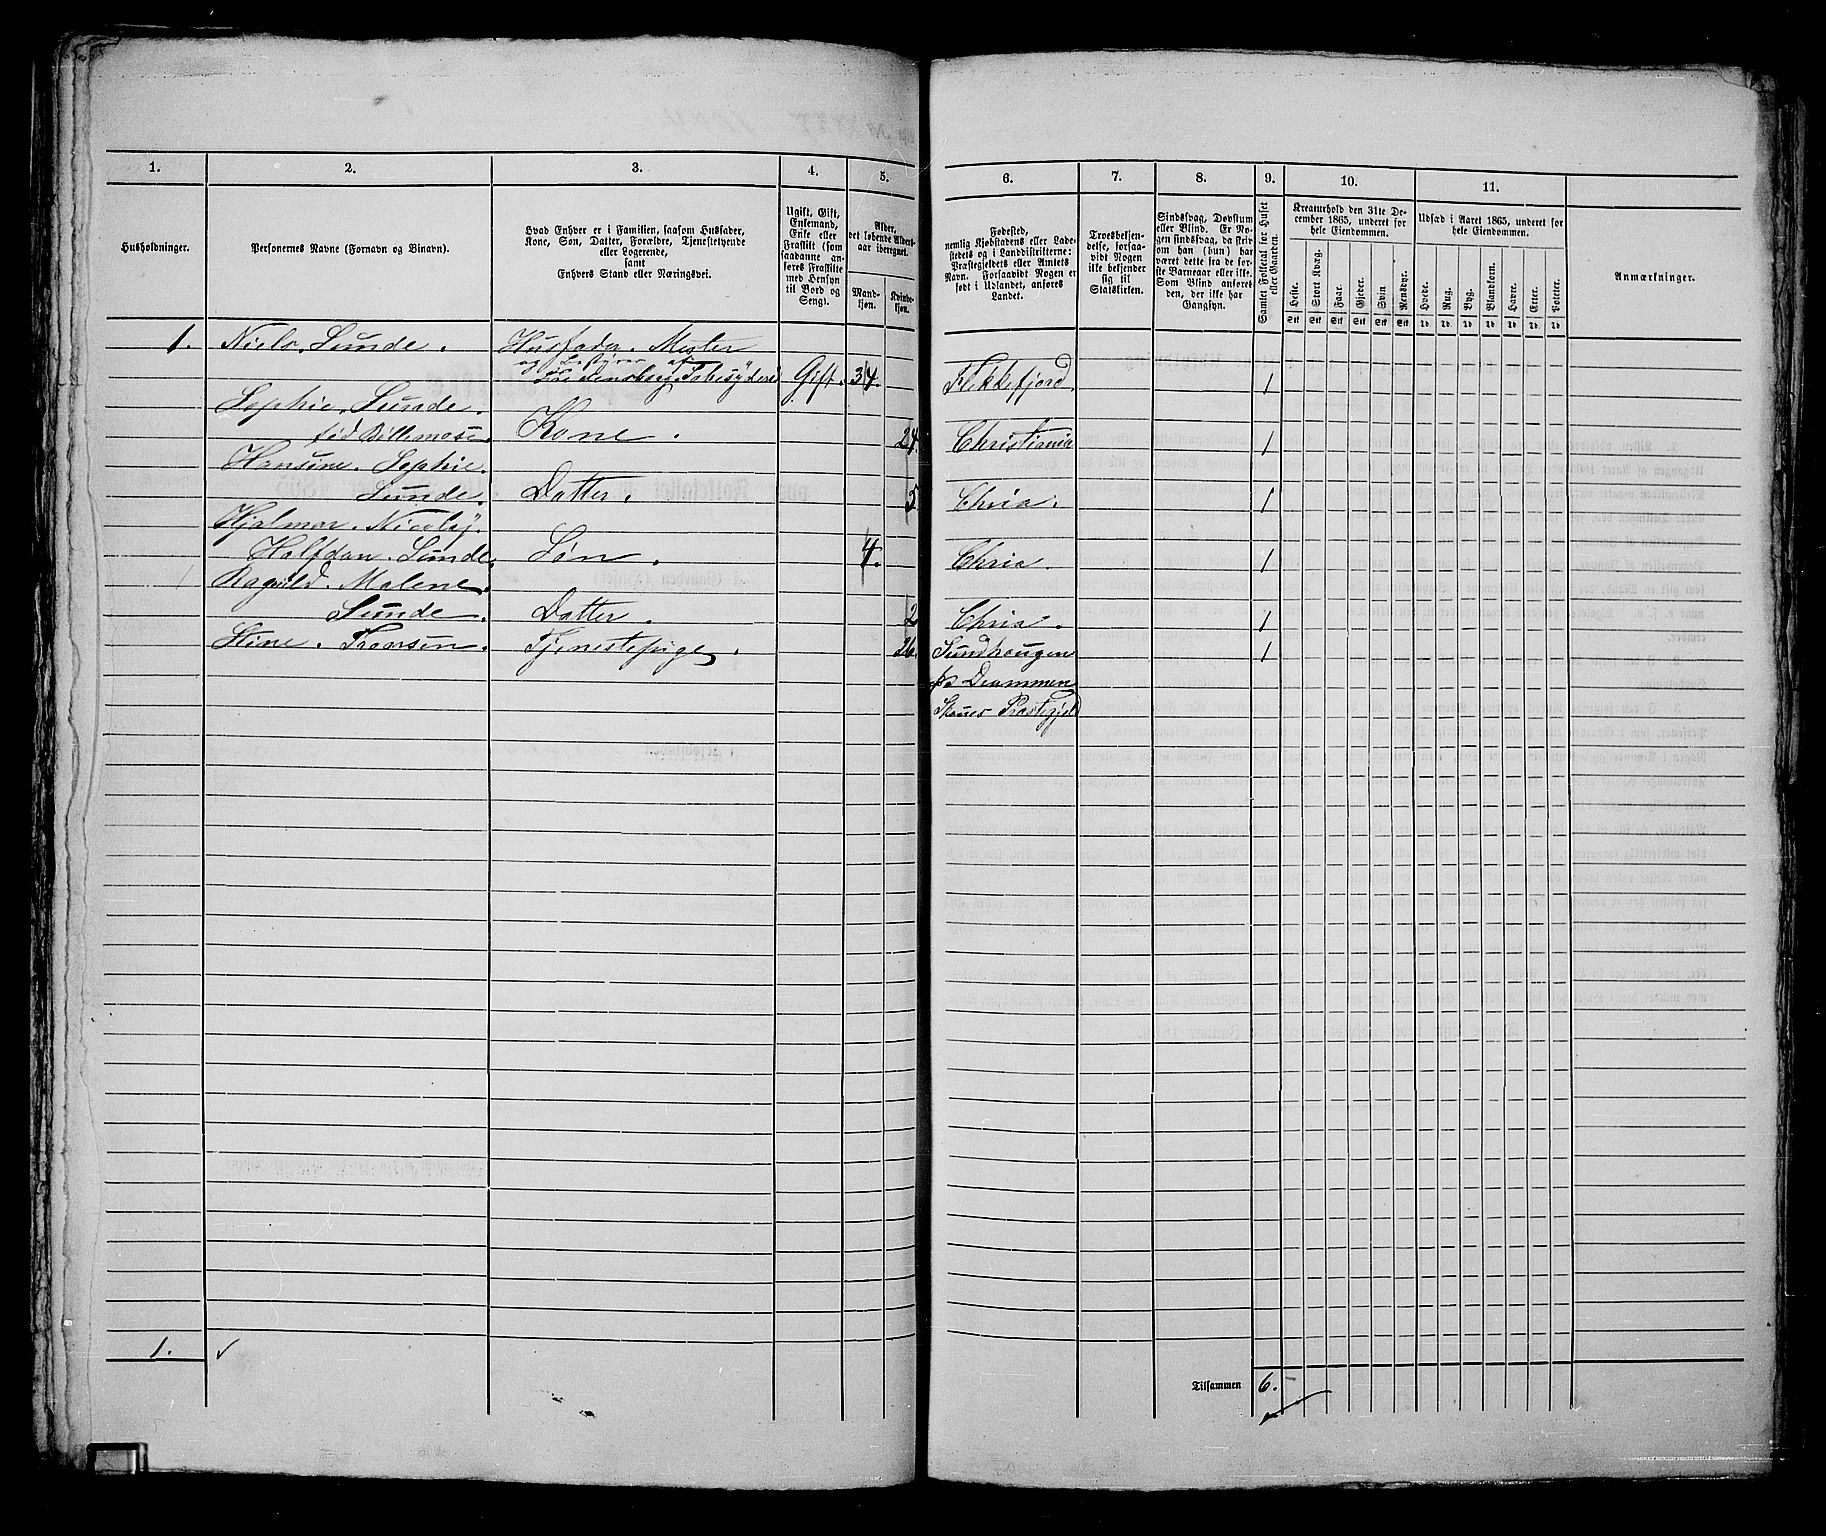 1.
2.
3.
4.
5.
6.
7.
8.
9.
10.
11.
Husholdninger.
Personernes Navne (Fornavn og Binavn).
Hvad Enhver er i Familien, saasom Husfader,
Kone, Søn, Datter, Forældre, Tjenestetyende
eller Logerende,
samt
Enhvers Stand eller Næringsvei.
Ugift, Gift,
Enkemand,
Enke eller
Fraskilt (som
saadanne an-
føres Fraskilte
med Hensyn
til Bord og
Seng).
Alder,
det løbende Alders-
aar iberegnet.
Mand-
kjøn.
Kvinde-
kjøn.
Fødested,
nemlig Kjøbstadens eller Lade-
stedets og i Landdistrikterne:
Præstegjeldets eller Amtets
Navn. Forsaavidt Nogen er
født i Udlandet, anføres
Landet.
Troesbekjen-
delse, forsaa-
vidt Nogen
ikke bekjender
sig til
Statskirken.
Sindssvag, Døvstum
eller Blind. Er No-
gen sindssvag, da strix
om han (hun) har
været dette fra de før-
ste Barneaar eller ikke.
Som Blind anføres
den, der ikke har
Gangsyn.
Samlet Folketal for Huset
eller Gaarden.
Kreaturhold den 31te De-
cember 1865, underet for
hele Eiendommen.
Heste.
Stort Kvæg.
Faar.
Gjeder.
Svin
Rensdyr.
Stk Stk Stk Stk Stk Stk
Udsæd i Aaret 1865, underet for
hele Eiendommen.
Hvede.
Rug.
Byg.
Blandkorn.
Havre.
Erter.
Poteter.
Td. Td. Td. Td. Td. Td. Td.
Anmærkninger.
1. Niels. Sunde. Husfader. Mester
og Bestyrer af
Fredensborg Tobesyderi Gift. 34. Flekkefjord 1
Sophie. Sunde.
fød Kone. 24. Christiania 1
Hansine. Sophie.
Sunde. Datter. 5 Chria. 1
Hjalmar. Nicolay.
Halfdan. Sunde. Søn. 4. Chria. 1
Ragnild. Malene.
Sunde. Datter. 2 Chria. 1
Stine. Fransen. Tjenestepige. 26. Sundhaugen 1
ps Drammen
Skouer Præstegjeld
1.
Tilsammen 6.